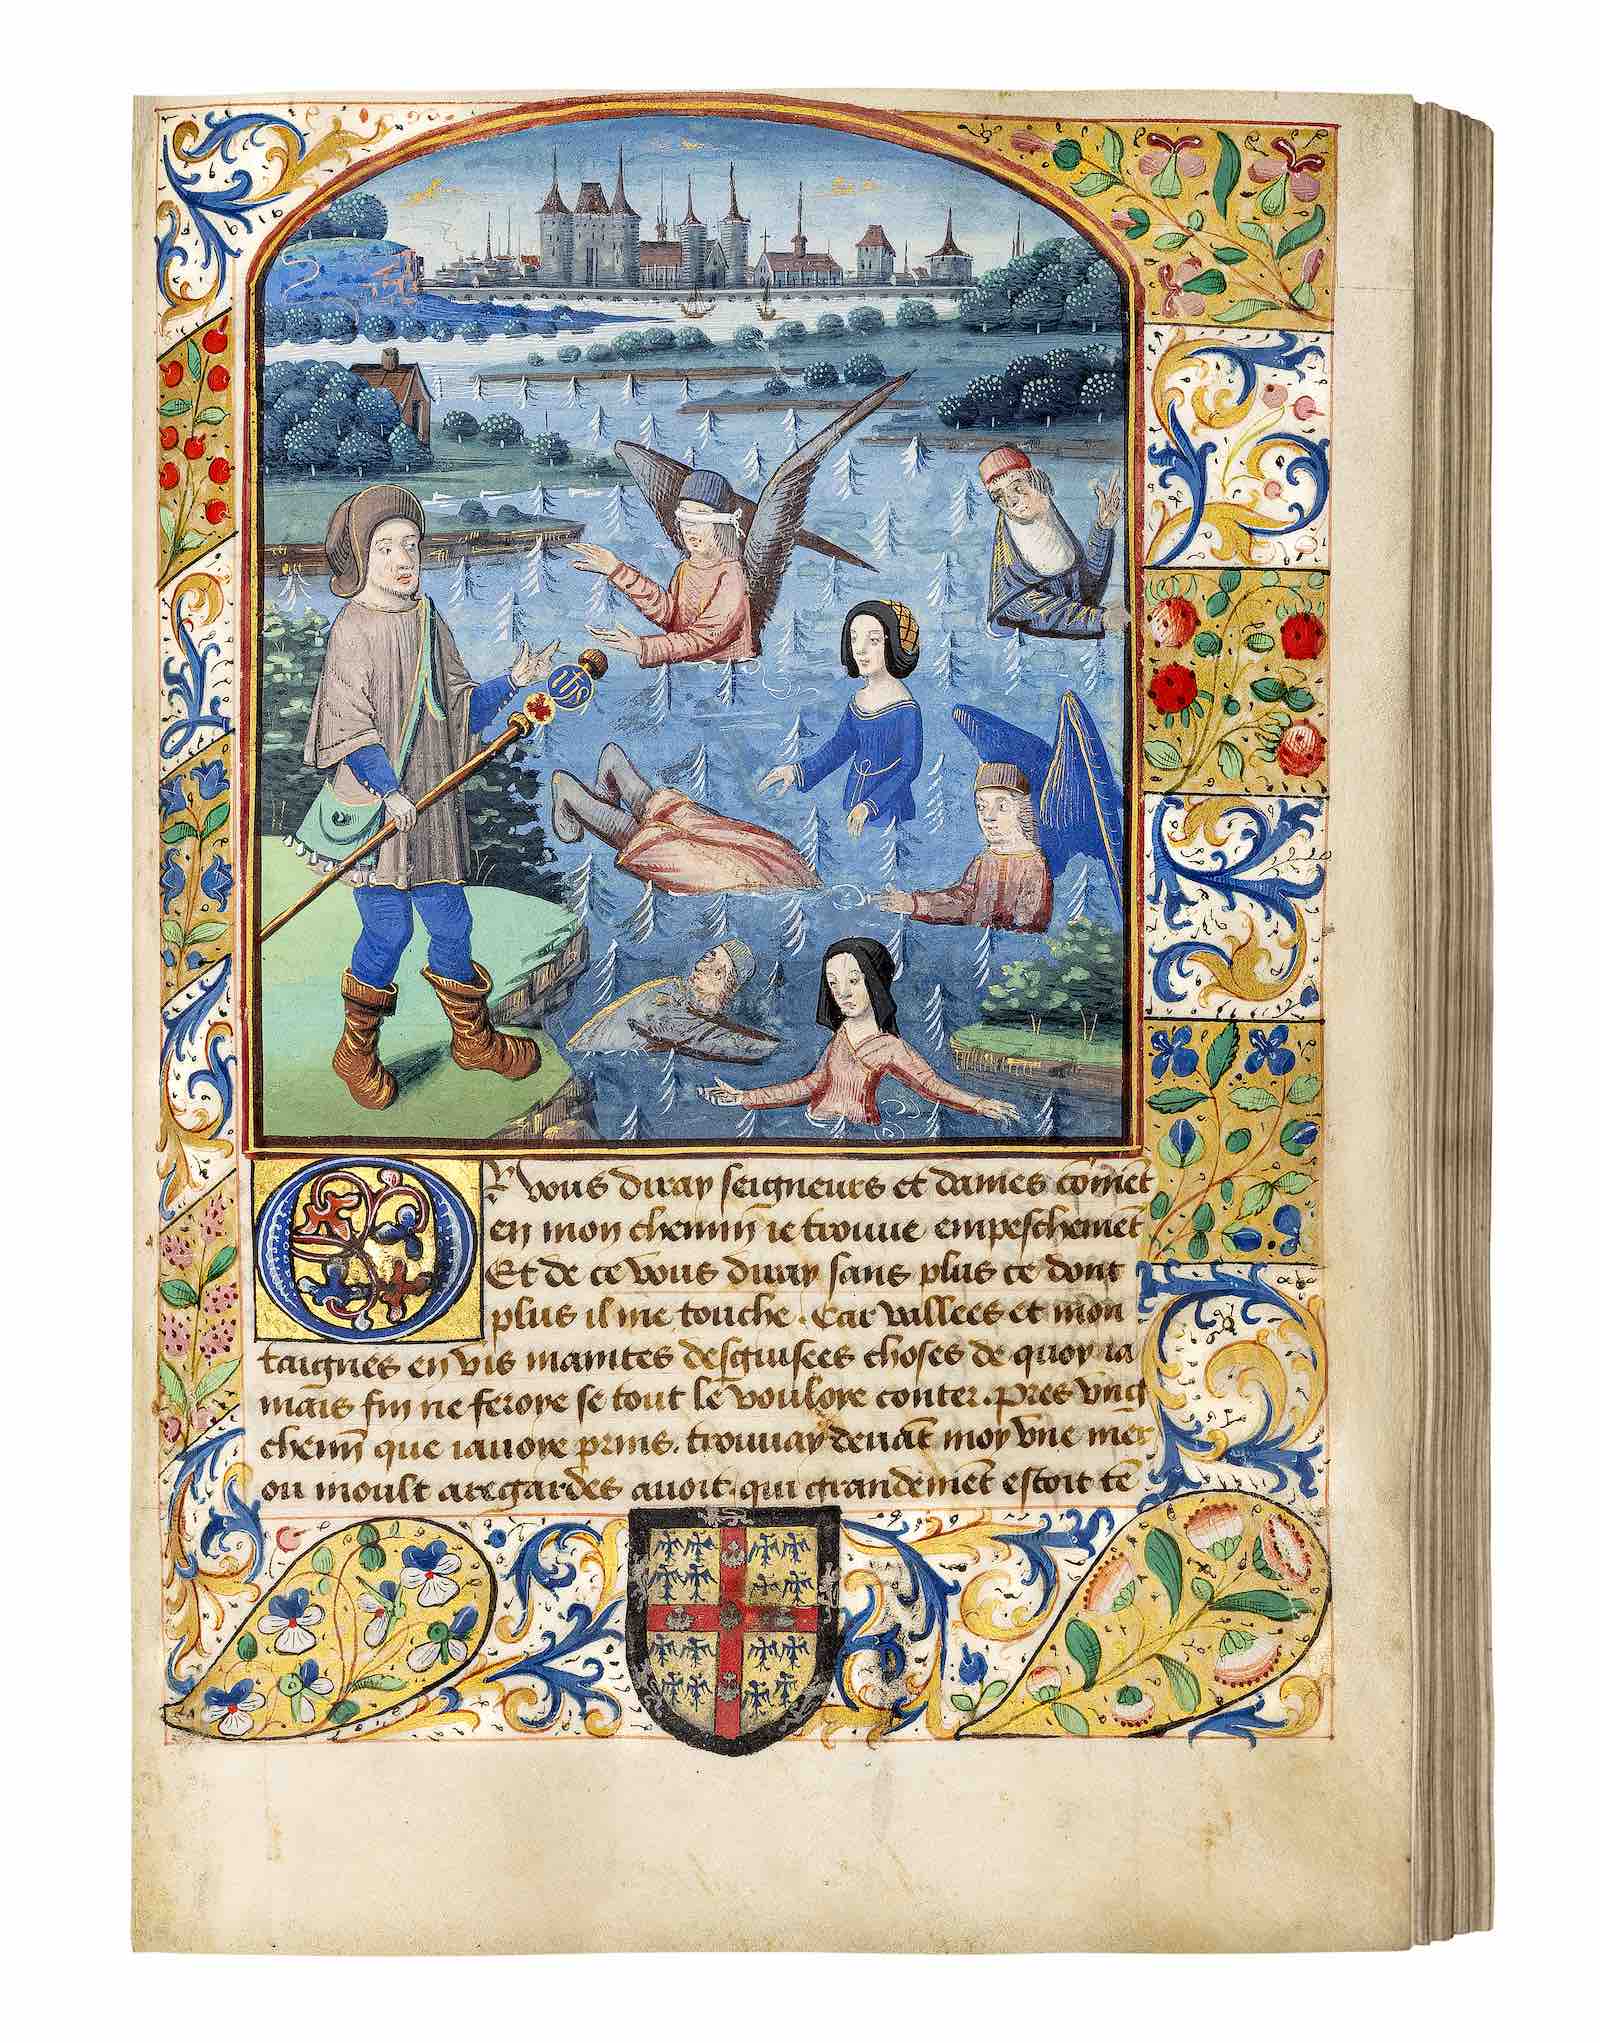 ihs
Or vous diray seigneurs et dames cōmēt
en mon chemin ie trouue empeschemēt
Et de ce vous diray sans plus ce dont
plus il me touche. Car vallees et mon
taignes en vis maintes desguisees choses de quoy ia
mais fin ne feroye se tout le vouloye conter. Pres vng
chemī que iauoye prins. trouuay deuāt moy vne mer
ou moult aregardes auoit. qui grandemēt estoit tē